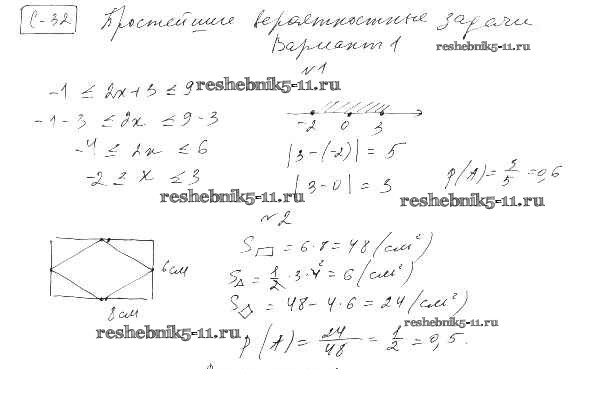 С-32 Простейшие вероятностные задачи
Вариант 1
reshebnik5-11.ru
№1
-1 ≤ 2x+3 ≤ 9
reshebnik5-11.ru
-1-3 ≤ 2x ≤ 9-3
-2 0 3
-4 ≤ 2x ≤ 6
|3-(-2)| = 5
-2 ≤ x ≤ 3
|3-0| = 3
P(A) = 3/5 = 0,6
reshebnik5-11.ru
reshebnik5-11.ru
№2
6 см
8 см
S▭ = 6·8 = 48 (см²)
S△ = 1/2 ·3·4² = 6 (см²)
S◇ = 48 - 4·6 = 24 (см²)
reshebnik5-11.ru
reshebnik5-11.ru
P(A) = 24/48 = 1/2 = 0,5.